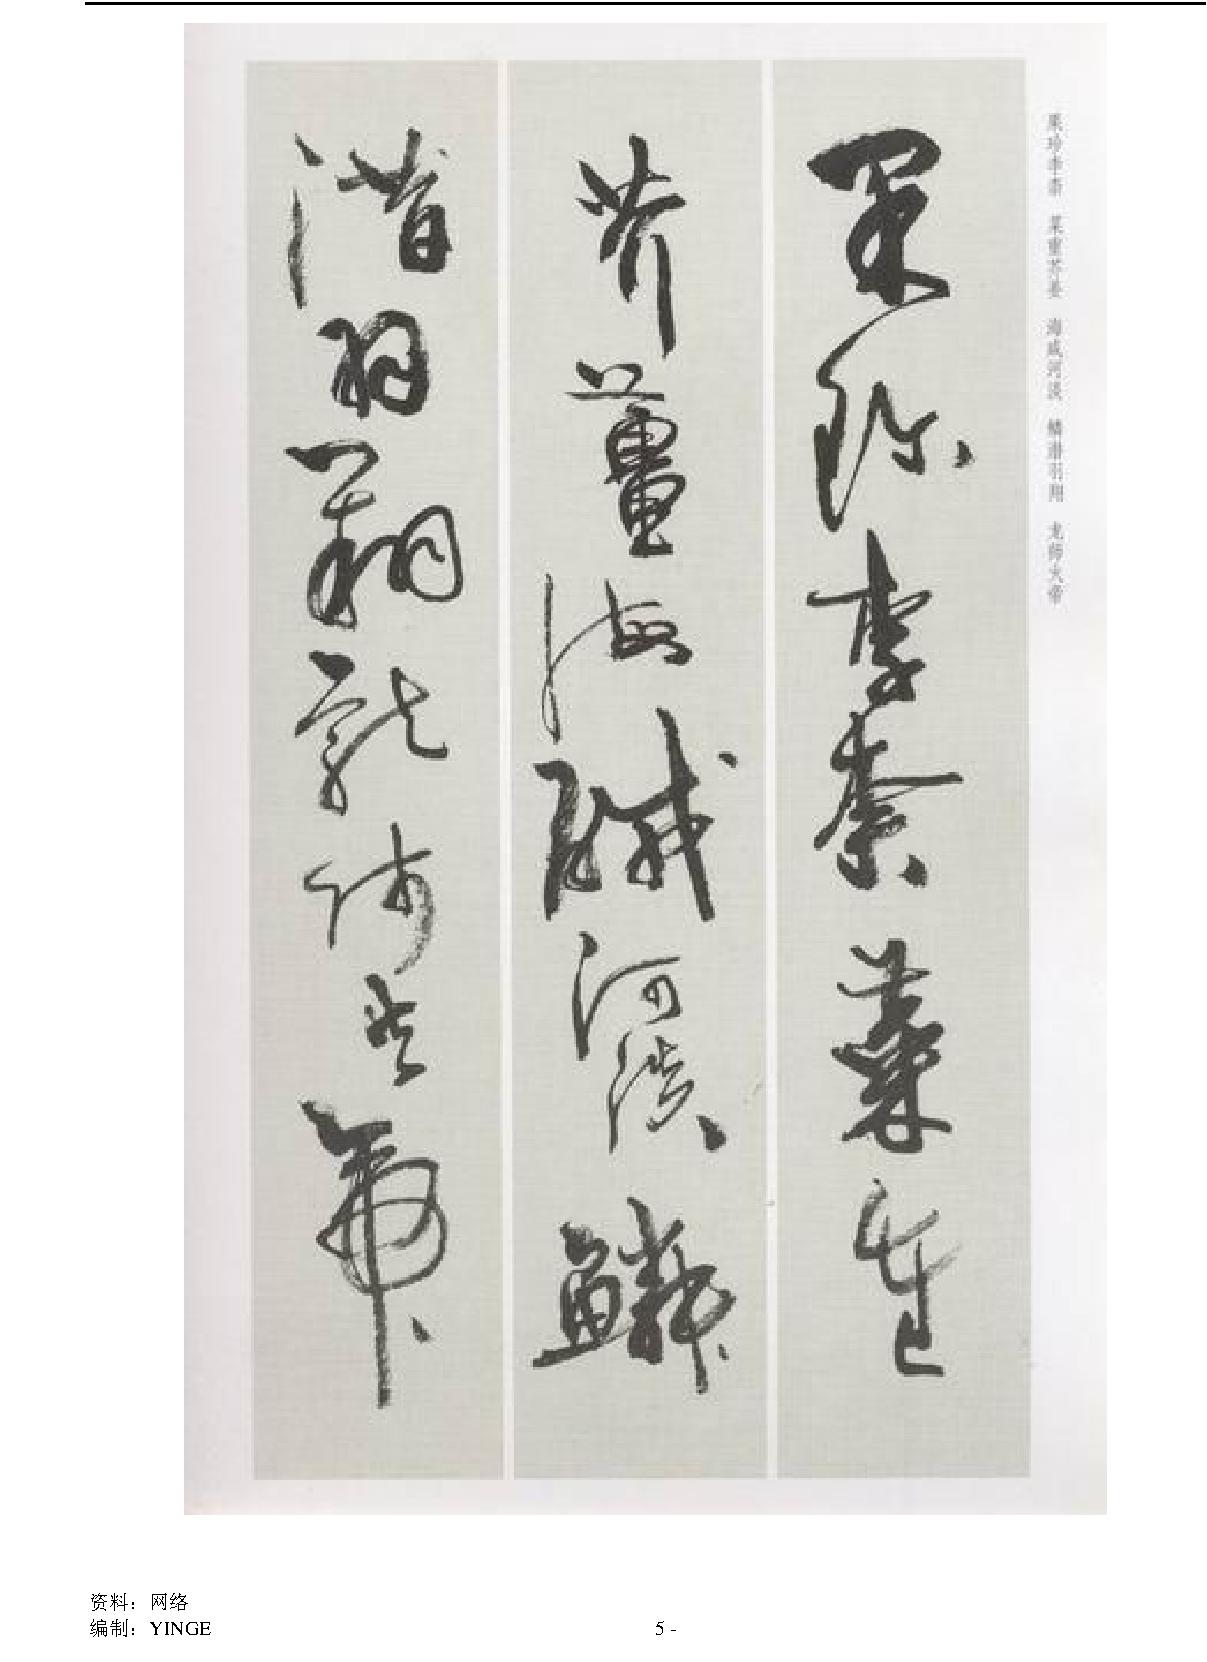 果珍李柰 菜重芥姜 海咸河淡 鳞潜羽翔 龙师火帝
果珍李柰菜重
芥薑海鹹河淡鱗
潛羽翔龍師火帝
资料：网络
编制：YINGE
5 -